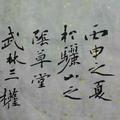 丙申之夏
於驪山之
蔭草堂
武林三權